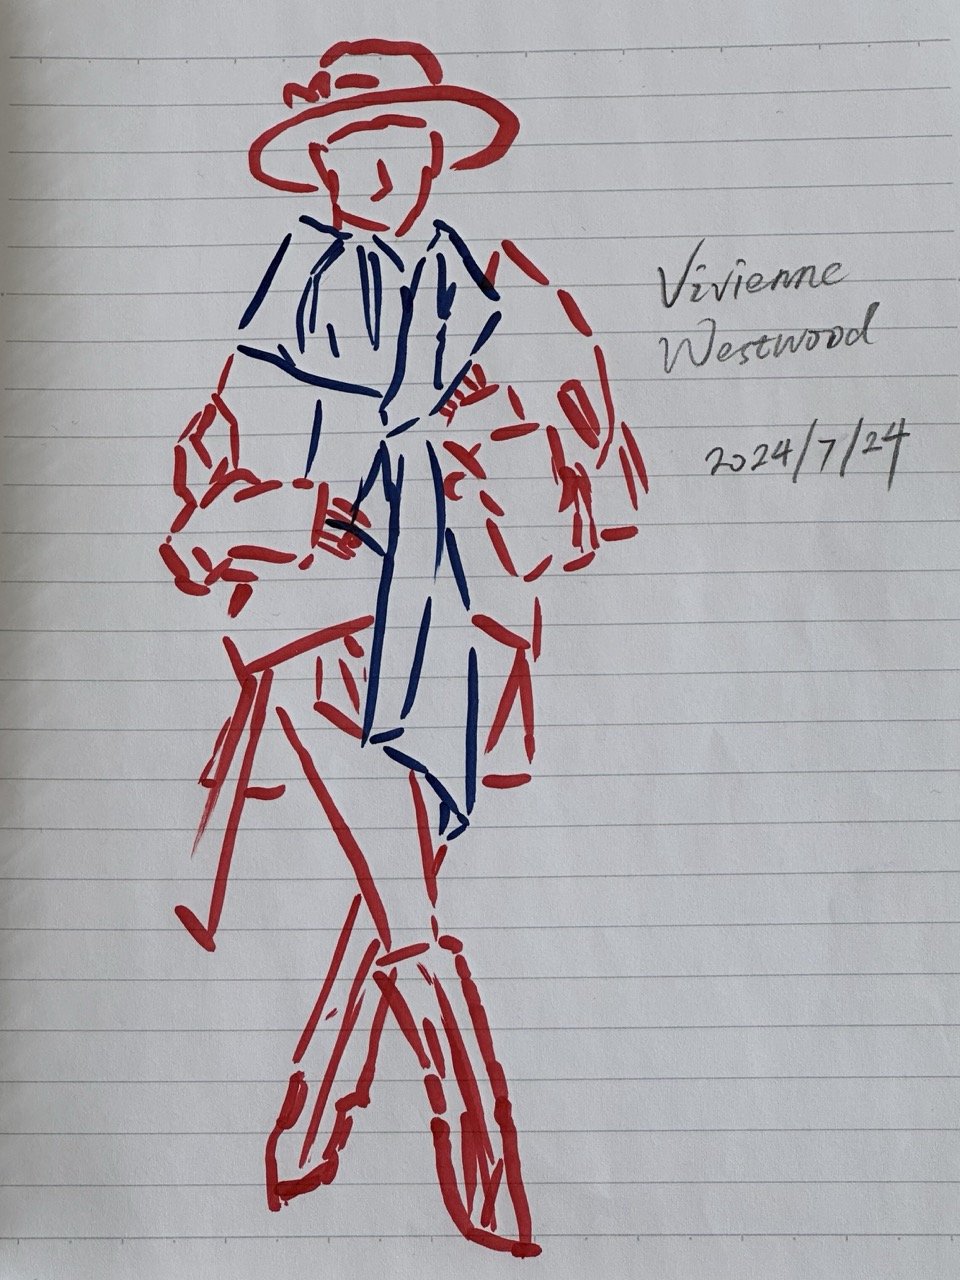 Vivienne
Westwood
2024/7/24